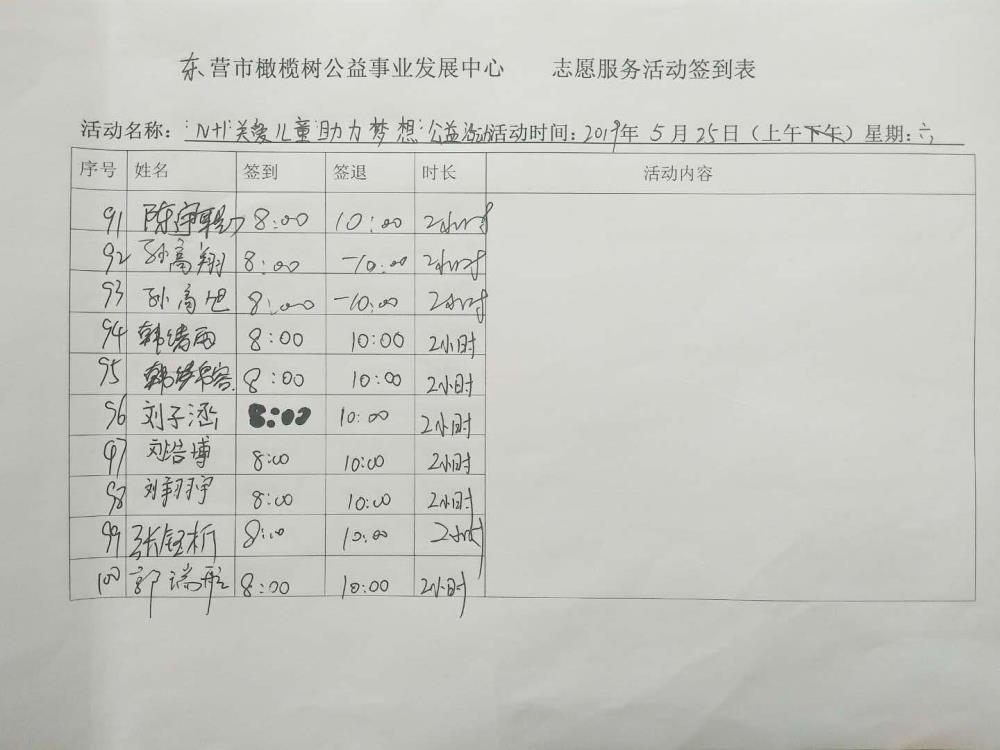 东营市橄榄树公益事业发展中心 志愿服务活动签到表
活动名称：“N+1”关爱儿童 助力梦想 公益活动 活动时间：2019年5月25日（上午下午）星期：六
序号 姓名 签到 签退 时长 活动内容
91 陈 8:00 10:00 2小时
92 孙高翔 8:00 -10:00 2小时
93 孙高旭 8:00 -10:00 2小时
94 韩绪雨 8:00 10:00 2小时
95 韩 8:00 10:00 2小时
96 刘子涵 8:00 10:00 2小时
97 刘浩博 8:00 10:00 2小时
98 刘翔宇 8:00 10:00 2小时
99 张钰析 8:00 10:00 2小时
100 郭瑞航 8:00 10:00 2小时